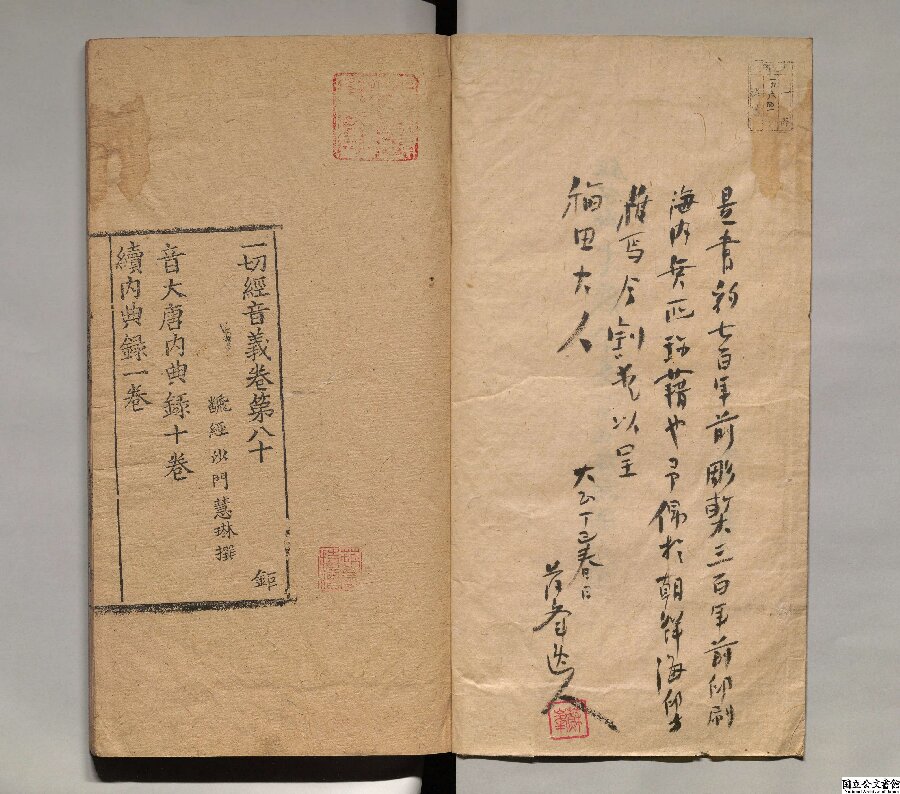 是書初七百年前彫槧三百年前印刷
海内無匹珍藉也予偶於朝鮮海印寺
獲焉今割愛以呈
福田大人
大正丁巳春日
一切經音義卷第八十
飜經沙門慧琳撰
鉅
音大唐内典録十卷
續内典録一卷
国立公文書館
National Archives of Japan